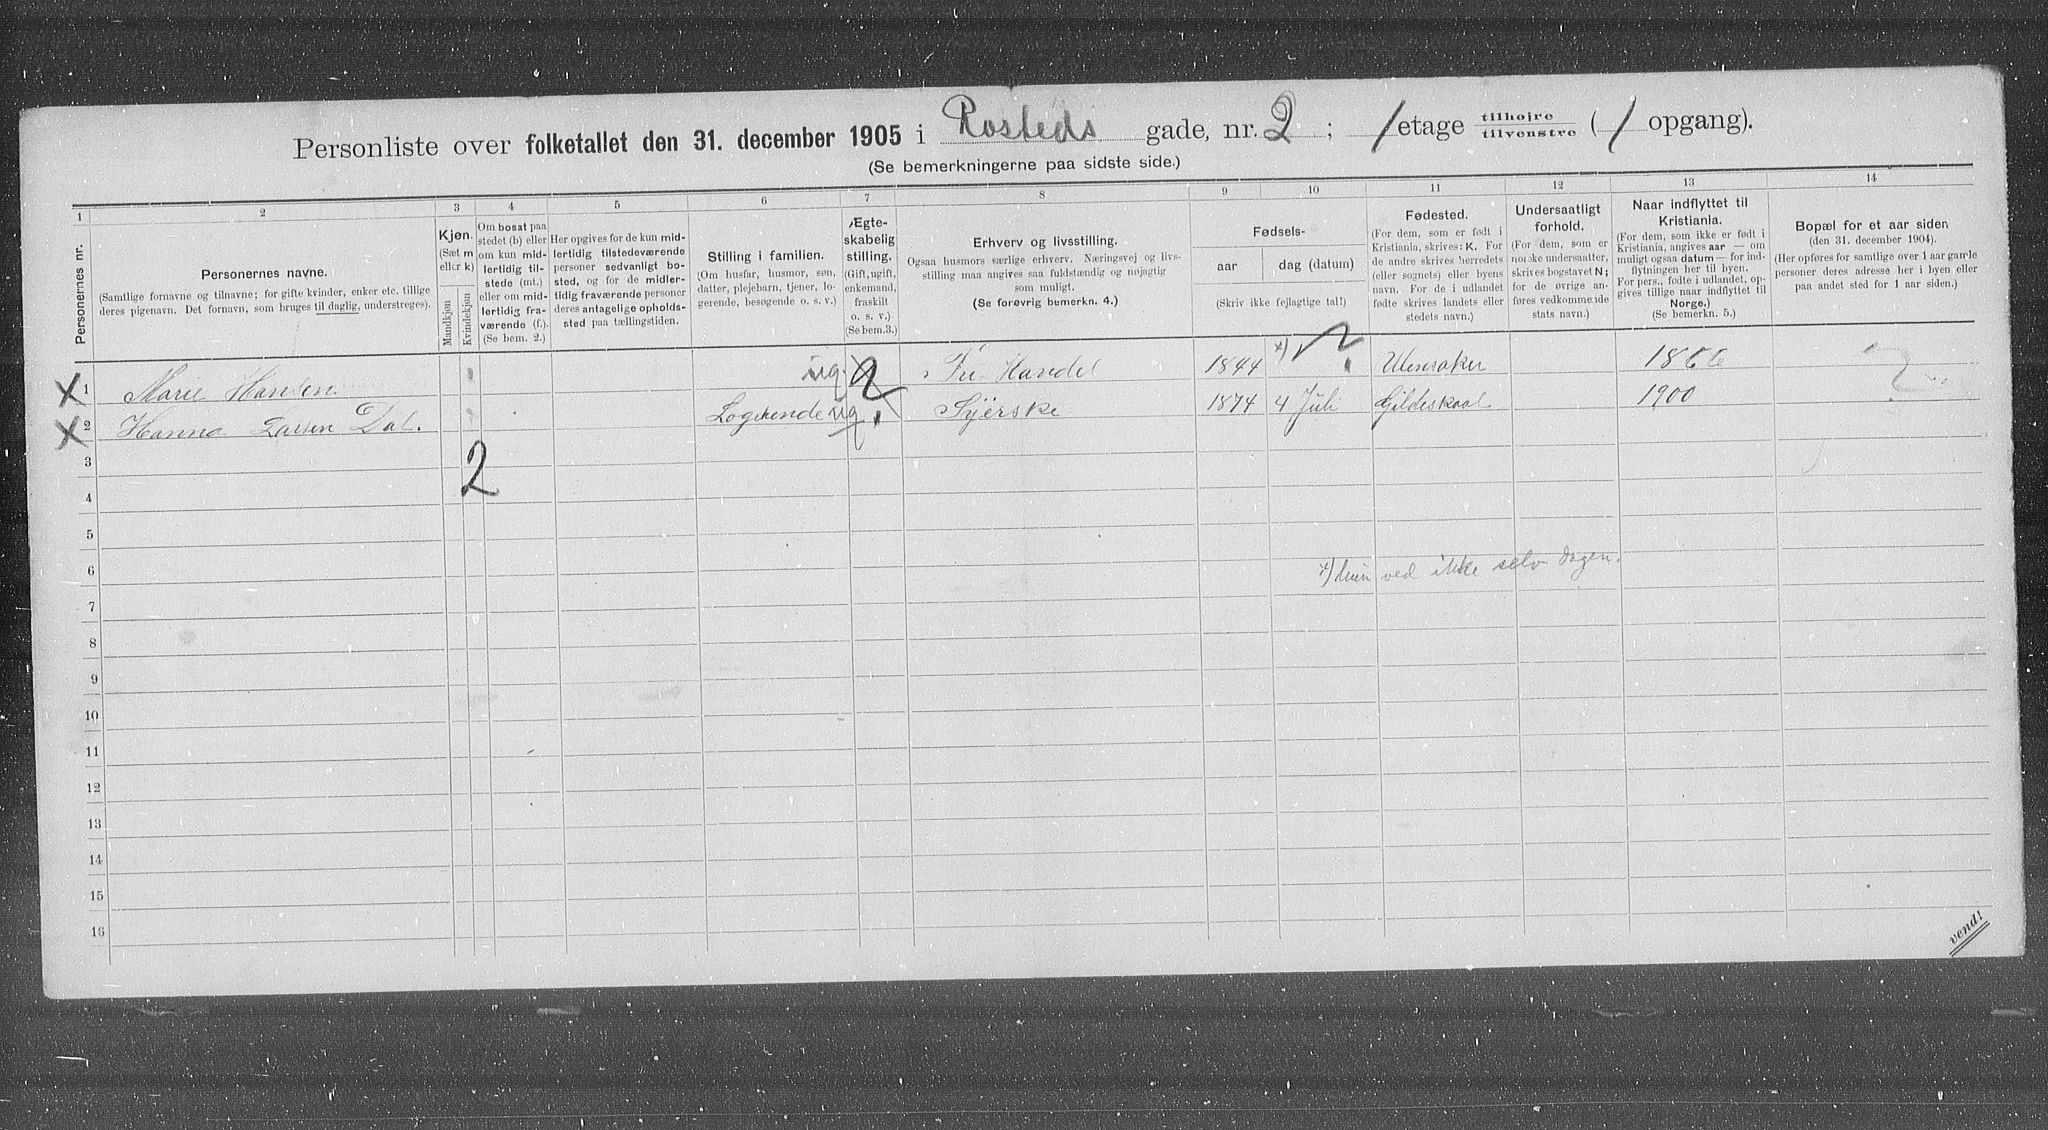 Personliste over folketallet den 31. december 1905 i Rosteds gade, nr. 2; 1 etage tilhøjre tilvenstre (1 opgang).
(Se bemerkningerne paa sidste side.)
1 2 3 4 5 6 7 8 9 10 11 12 13 14
Personernes nr.
Personernes navne.
(Samtlige fornavne og tilnavne; for gifte kvinder, enker etc. tillige
deres pigenavn. Det fornavn, som bruges til daglig, understreges).
Kjøn.
(Sæt m
eller k)
Mandkjøn
Kvindekjøn
Om bosat paa
stedet (b) eller
om kun mid-
lertidig til-
stede (mt.)
eller om mid-
lertidig fra-
værende (f.).
(Se bem. 2.)
Her opgives for de kun mid-
lertidig tilstedeværende
personer sedvanligt bo-
sted, og for de midler-
tidig fraværende personer
deres antagelige opholds-
sted paa tællingstiden.
Stilling i familien.
(Om husfar, husmor, søn,
datter, plejebarn, tjener, lo-
gerende, besøgende o. s. v.)
Ægte-
skabelig
stilling.
(Gift, ugift,
enkemand,
fraskilt
o. s. v.)
(Se bem. 3.)
Erhverv og livsstilling.
Ogsaa husmors særlige erhverv. Næringsvej og livs-
stilling maa angives saa fuldstændig og nøjagtig
som muligt.
(Se forøvrig bemerkn. 4.)
Fødsels-
aar
dag (datum)
(Skriv ikke fejlagtige tal!)
Fødested.
(For dem, som er født i
Kristiania, skrives: K. For
de andre skrives herredets
(eller sognets) eller byens
navn. For de i udlandet
fødte skrives landets eller
stedets navn.)
Undersaatligt
forhold.
(For dem, som er
norske undersaatter,
skrives bogstavet N;
for de øvrige an-
føres vedkommende
stats navn.)
Naar indflyttet til
Kristiania.
(For dem, som ikke er født i
Kristiania, angives aar — om
muligt ogsaa datum — for ind-
flytningen her til byen.
For pers., fødte i udlandet, op-
gives tillige naar indflyttet til
Norge.)
(Se bemerkn. 5.)
Bopæl for et aar siden
(den 31. december 1904).
(Her opføres for samtlige over 1 aar gamle
personer deres adresse her i byen eller
paa andet sted for 1 aar siden.)
X 1 Marie Hansen ug. 2 Fri Handel 1844 x) ? Ulensaker 1866 ?
X 2 Hanna Larsen Dal. Logerende ug Syerske 1874 4 Juli Gildeskaal 1900
3
2
4
5
6 x) hun ved ikke selv dagen.
7
8
9
10
11
12
13
14
15
16
vend!